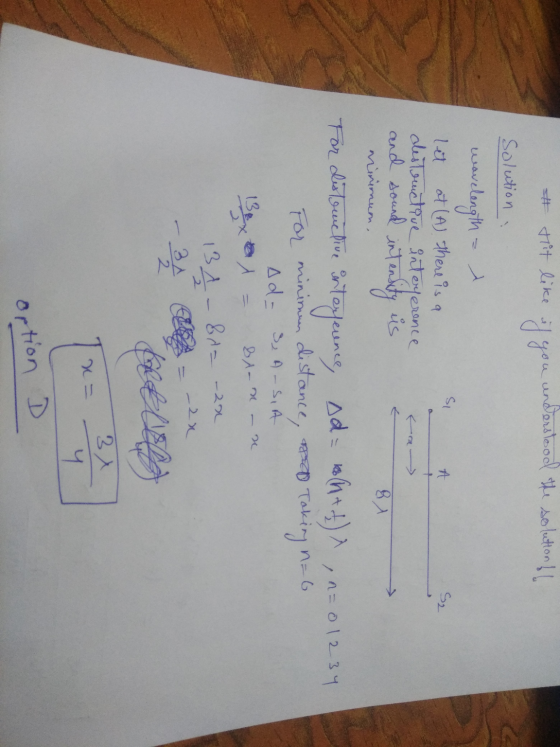 # Hit like if you understood the solution!!
Solution:
wavelength = λ
let at (A) there is a
destructive interference
and sound intensity is
minimum.
S₁ A S₂
x
8λ
For distructive interference, Δd = (n+½)λ, n = 0 1 2 3 4
For minimum distance, Taking n=6
Δd = S₂A - S₁A
13/2 x λ = 8λ - x - x
13λ/2 - 8λ = -2x
-3λ/2 = -2x
x = 3λ/4
option D